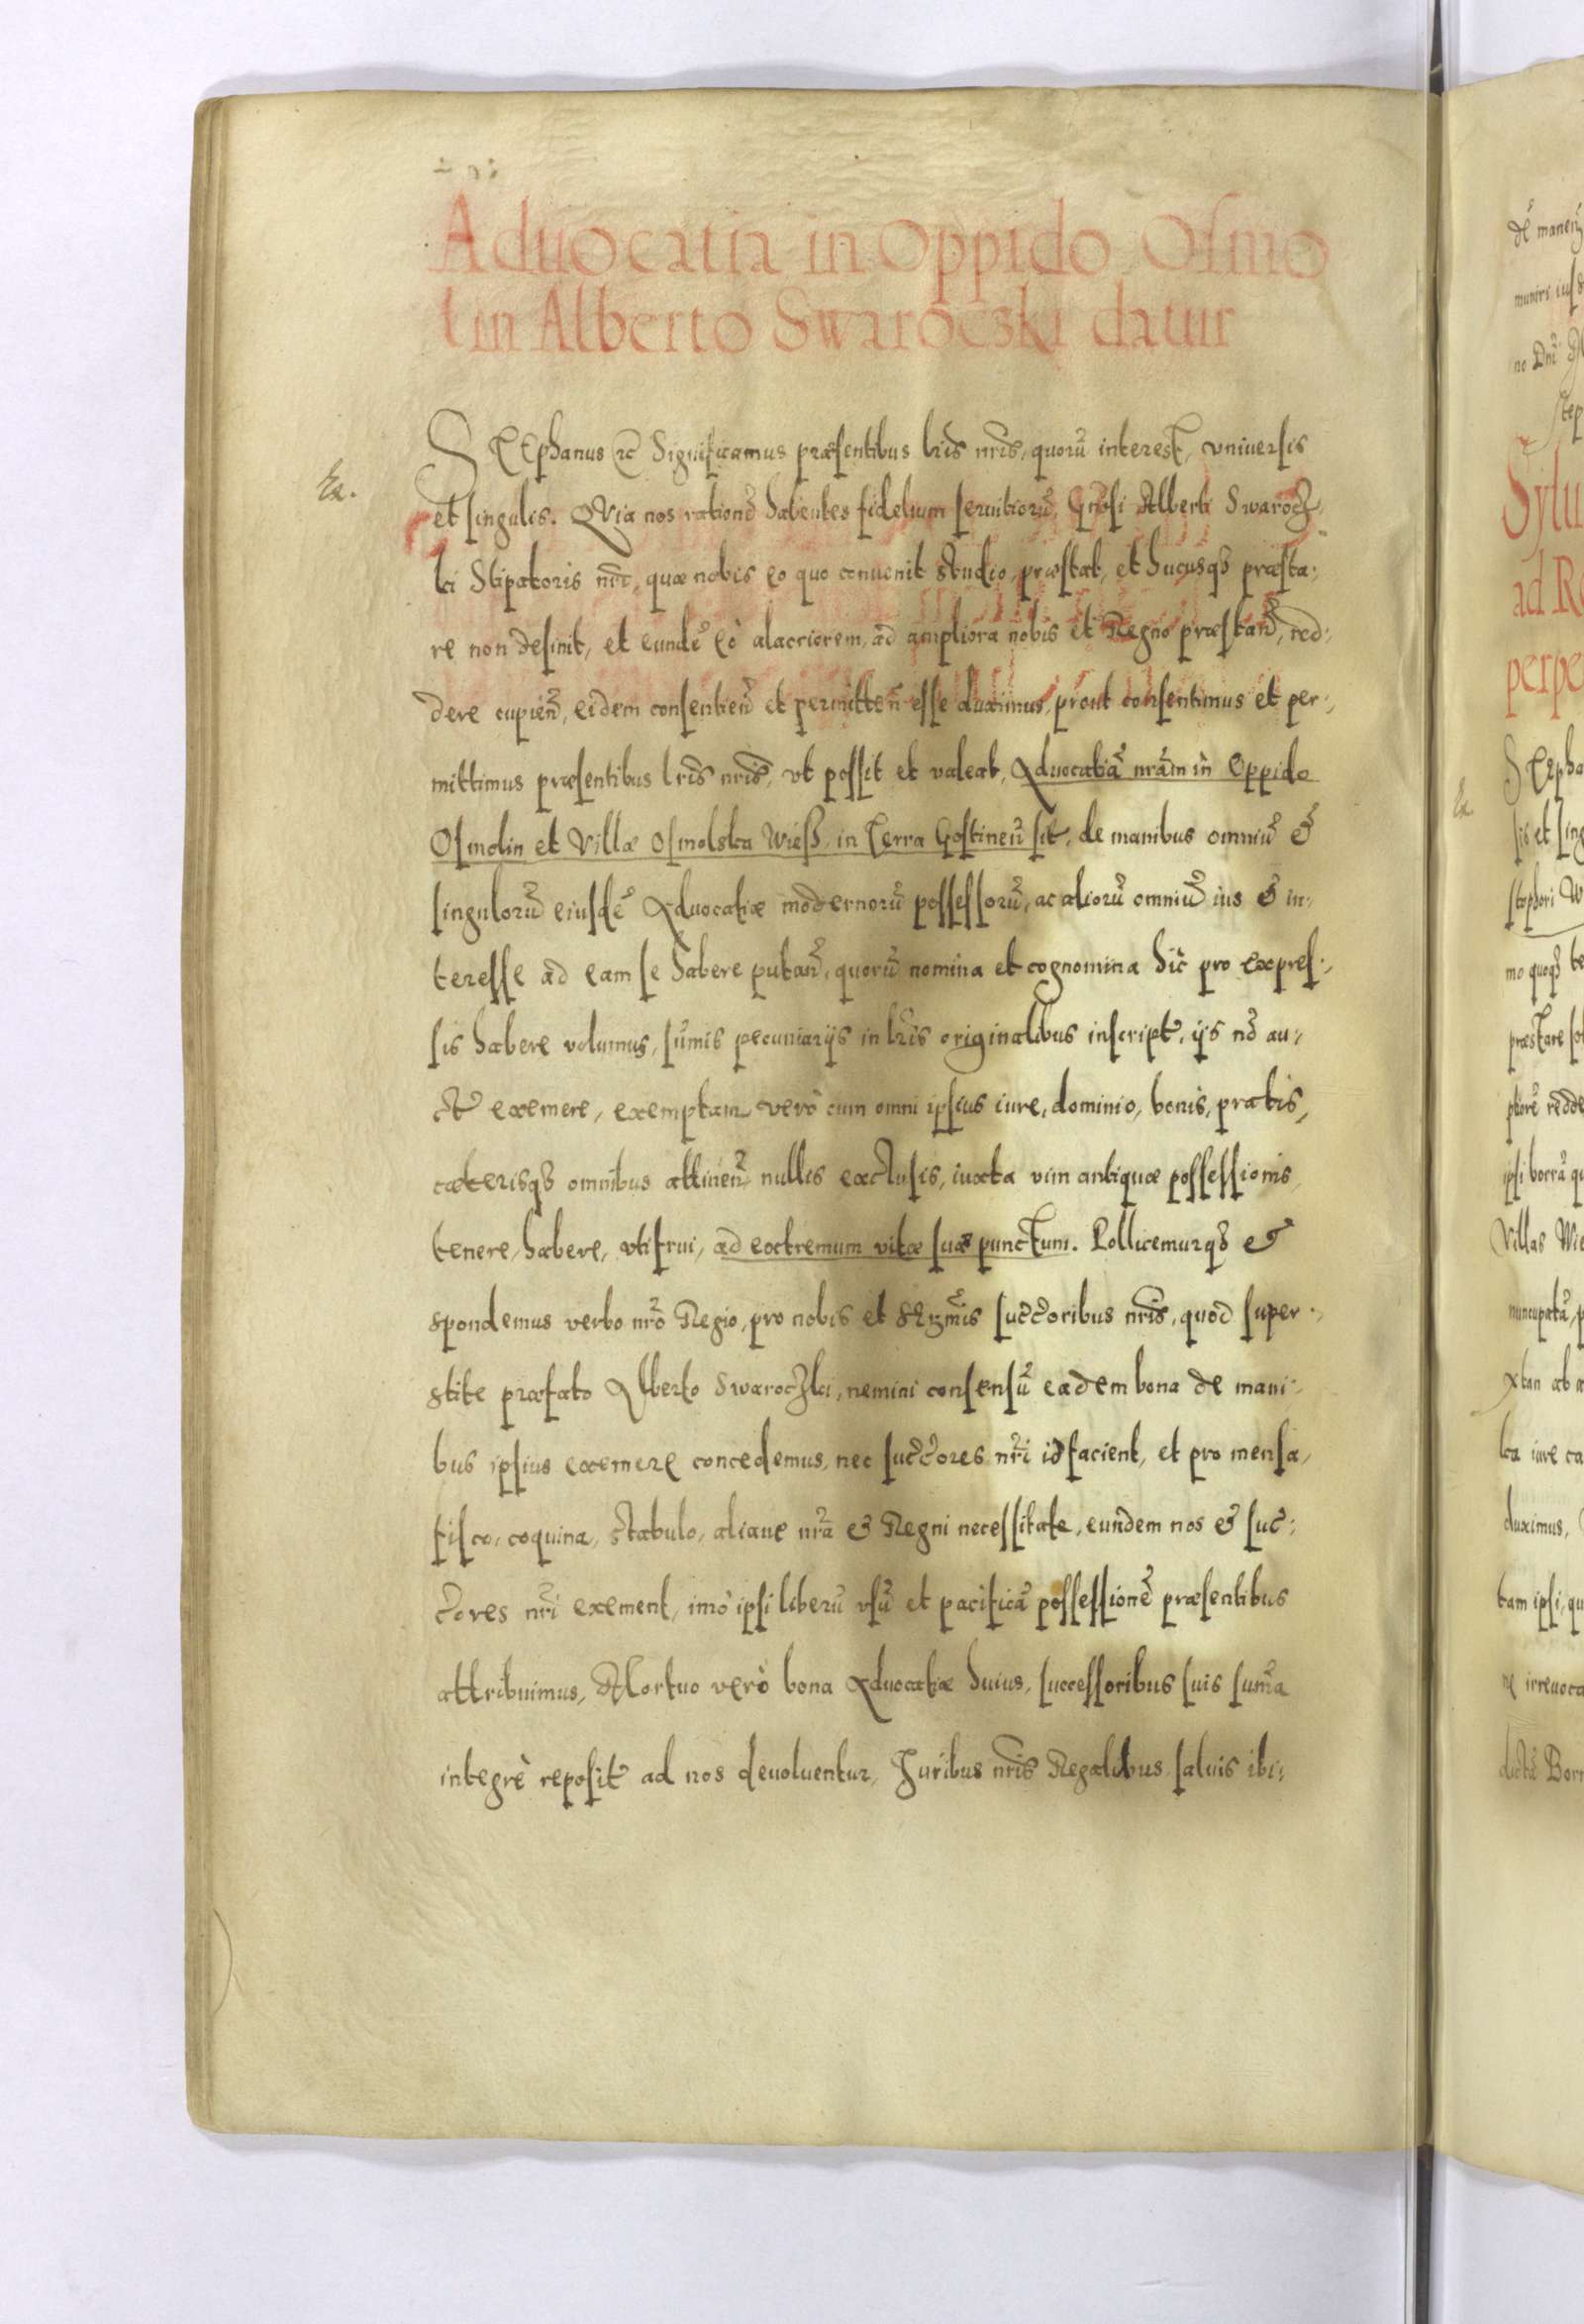 Aduocatia in Oppido Osmo
lin Alberto Swaroczki datur
Stephanus etc Significamus præsentibus lris nris, quorũ interest, vniuersis
Ex.
et singulis. Quia nos rationẽ habentes fidelium seruitiorũ, Gnosi Alberti Swarocz-
ki Stipatoris nri, quæ nobis eo quo conuenit studio, præstat, et hucusq3 præsta-
re non desinit, et eundẽ eò alacriorem, ad ampliora nobis et Regno præstañ, red-
dere cupieñ, eidem consentieñ et permitteñ esse duximus, prout consentimus et per-
mittimus præsentibus lris nris, vt possit et valeat, Aduocatiã nram in Oppido
Osmolin et Villæ Osmolska Wiesz, in Terra Gostineñ sit, de manibus omniũ &
singulorũ eiusdẽ Aduocatiæ modernorũ possessorũ, ac aliorũ omniũ ius & in-
teresse ad eam se habere putañ, quorũ nomina et cognomina hic pro expres-
sis habere volumus, sũmis pecuniarijs in lris originalibus inscript, ijs nõ au-
ct exemere, exemptam verò cum omni ipsius iure, dominio, bonis, pratis,
cæterisq3 omnibus attineñ nullis exclusis, iuxta vim antiquæ possessionis,
tenere, habere, vtifrui, ad extremum vitæ suæ punctum. Pollicemurq3 &
spondemus verbo nro Regio, pro nobis et Serzmis succoribus nris, quod super-
stite præfato Alberto Swaroczki, nemini consensũ eadem bona de mani-
bus ipsius exemere concedemus, nec succores nri id facient, et pro mensa,
fisco, coquina, stabulo, aliaue nra & Regni necessitate, eundem nos & suc-
cores nri exement, imò ipsi liberũ vsũ et pacificã possessionẽ præsentibus
attribuimus, Mortuo verò bona Aduocatiæ huius, successoribus suis sum̃a
integrè reposit ad nos deuoluentur, Juribus nris Regalibus saluis ibi-